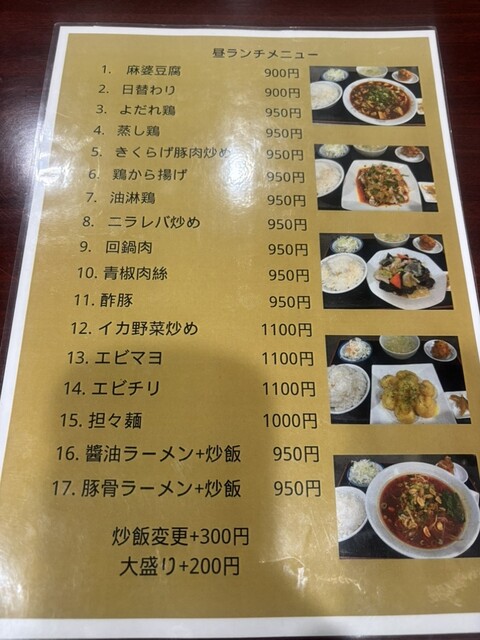 昼ランチメニュー
1. 麻婆豆腐 900円
2. 日替わり 900円
3. よだれ鶏 950円
4. 蒸し鶏 950円
5. きくらげ豚肉炒め 950円
6. 鶏から揚げ 950円
7. 油淋鶏 950円
8. ニラレバ炒め 950円
9. 回鍋肉 950円
10. 青椒肉絲 950円
11. 酢豚 950円
12. イカ野菜炒め 1100円
13. エビマヨ 1100円
14. エビチリ 1100円
15. 担々麺 1000円
16. 醬油ラーメン+炒飯 950円
17. 豚骨ラーメン+炒飯 950円
炒飯変更+300円
大盛り+200円